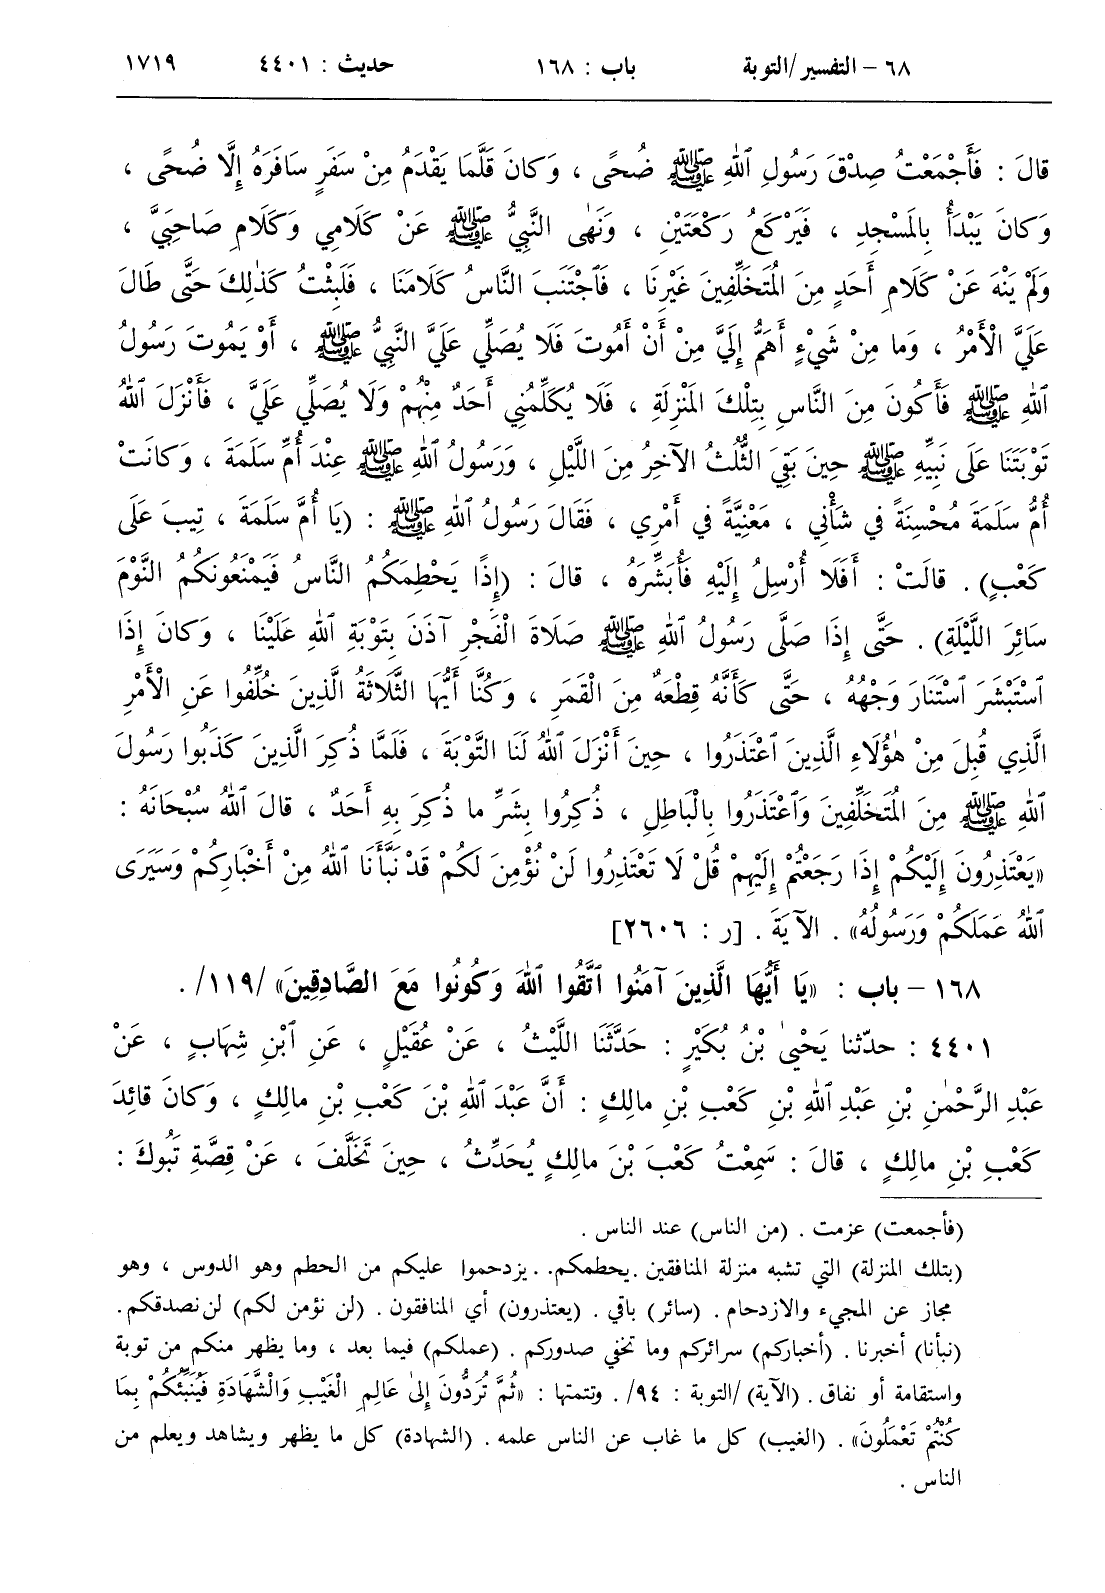 ٦٨ - التفسير/التوبة باب : ١٦٨ حديث : ٤٤٠١ ١٧١٩
قالَ : فَأَجْمَعْتُ صِدْقَ رَسُولِ ٱللهِ ﷺ ضُحًى ، وَكانَ قَلَّمَا يَقْدَمُ مِنْ سَفَرٍ سَافَرَهُ إِلَّا ضُحًى ،
وَكانَ يَبْدَأُ بِالمَسْجِدِ ، فَيَرْكَعُ رَكْعَتَيْنِ ، وَنَهٰى النَّبِيُّ ﷺ عَنْ كَلَامِي وَكَلَامِ صَاحِبَيَّ ،
وَلَمْ يَنْهَ عَنْ كَلَامِ أَحَدٍ مِنَ المُتَخَلِّفِينَ غَيْرِنَا ، فَٱجْتَنَبَ النَّاسُ كَلَامَنَا ، فَلَبِثْتُ كَذٰلِكَ حَتَّى طَالَ
عَلَيَّ الْأَمْرُ ، وَما مِنْ شَيْءٍ أَهَمُّ إِلَيَّ مِنْ أَنْ أَمُوتَ فَلَا يُصَلِّي عَلَيَّ النَّبِيُّ ﷺ ، أَوْ يَمُوتَ رَسُولُ
ٱللهِ ﷺ فَأَكُونَ مِنَ النَّاسِ بِتِلْكَ المَنْزِلَةِ ، فَلَا يُكَلِّمُنِي أَحَدٌ مِنْهُمْ وَلَا يُصَلِّي عَلَيَّ ، فَأَنْزَلَ ٱللهُ
تَوْبَتَنَا عَلَى نَبِيِّهِ ﷺ حِينَ بَقِيَ الثُّلُثُ الآخِرُ مِنَ اللَّيْلِ ، وَرَسُولُ ٱللهِ ﷺ عِنْدَ أُمِّ سَلَمَةَ ، وَكانَتْ
أُمُّ سَلَمَةَ مُحْسِنَةً في شَأْنِي ، مَعْنِيَّةً في أَمْرِي ، فَقَالَ رَسُولُ ٱللهِ ﷺ : (يَا أُمَّ سَلَمَةَ ، تِيبَ عَلَى
كَعْبٍ) . قالَتْ : أَفَلَا أُرْسِلُ إِلَيْهِ فَأُبَشِّرَهُ ، قالَ : (إِذًا يَحْطِمَكُمُ النَّاسُ فَيَمْنَعُونَكُمُ النَّوْمَ
سَائِرَ اللَّيْلَةِ) . حَتَّى إِذَا صَلَّى رَسُولُ ٱللهِ ﷺ صَلَاةَ الْفَجْرِ آذَنَ بِتَوْبَةِ ٱللهِ عَلَيْنَا ، وَكانَ إِذَا
ٱسْتَبْشَرَ ٱسْتَنَارَ وَجْهُهُ ، حَتَّى كَأَنَّهُ قِطْعَةٌ مِنَ الْقَمَرِ ، وَكُنَّا أَيُّهَا الثَّلَاثَةُ الَّذِينَ خُلِّفُوا عَنِ الْأَمْرِ
الَّذِي قُبِلَ مِنْ هٰؤُلَاءِ الَّذِينَ ٱعْتَذَرُوا ، حِينَ أَنْزَلَ ٱللهُ لَنَا التَّوْبَةَ ، فَلَمَّا ذُكِرَ الَّذِينَ كَذَبُوا رَسُولَ
ٱللهِ ﷺ مِنَ المُتَخَلِّفِينَ وَٱعْتَذَرُوا بِالْبَاطِلِ ، ذُكِرُوا بِشَرِّ ما ذُكِرَ بِهِ أَحَدٌ ، قالَ ٱللهُ سُبْحَانَهُ :
«يَعْتَذِرُونَ إِلَيْكُمْ إِذَا رَجَعْتُمْ إِلَيْهِمْ قُلْ لَا تَعْتَذِرُوا لَنْ نُؤْمِنَ لَكُمْ قَدْ نَبَّأَنَا ٱللهُ مِنْ أَخْبَارِكُمْ وَسَيَرَى
ٱللهُ عَمَلَكُمْ وَرَسُولُهُ» . الآيَةَ . [ر : ٢٦٠٦]
١٦٨ - باب : «يَا أَيُّهَا الَّذِينَ آمَنُوا ٱتَّقُوا ٱللهَ وَكُونُوا مَعَ الصَّادِقِينَ» /١١٩/ .
٤٤٠١ : حدّثنا يَحْيىٰ بْنُ بُكَيْرٍ : حَدَّثَنَا اللَّيْثُ ، عَنْ عُقَيْلٍ ، عَنِ ٱبْنِ شِهَابٍ ، عَنْ
عَبْدِ الرَّحْمٰنِ بْنِ عَبْدِ ٱللهِ بْنِ كَعْبِ بْنِ مالِكٍ : أَنَّ عَبْدَ ٱللهِ بْنَ كَعْبِ بْنِ مالِكٍ ، وَكانَ قائِدَ
كَعْبِ بْنِ مالِكٍ ، قالَ : سَمِعْتُ كَعْبَ بْنَ مالِكٍ يُحَدِّثُ ، حِينَ تَخَلَّفَ ، عَنْ قِصَّةِ تَبُوكَ :
(فأجمعت) عزمت . (من الناس) عند الناس .
(بتلك المنزلة) التي تشبه منزلة المنافقين .يحطمكم. .يزدحموا عليكم من الحطم وهو الدوس ، وهو
مجاز عن المجيء والازدحام . (سائر) باقي . (يعتذرون) أي المنافقون . (لن نؤمن لكم) لن نصدقكم.
(نبأنا) أخبرنا . (أخباركم) سرائركم وما تخفي صدوركم . (عملكم) فيما بعد ، وما يظهر منكم من توبة
واستقامة أو نفاق . (الآية) /التوبة : ٩٤/. وتتمتها : «ثُمَّ تُرَدُّونَ إِلىٰ عَالِمِ الْغَيْبِ وَالشَّهَادَةِ فَيُنَبِّئُكُمْ بِمَا
كُنْتُمْ تَعْمَلُونَ» . (الغيب) كل ما غاب عن الناس علمه . (الشهادة) كل ما يظهر ويشاهد ويعلم من
الناس .